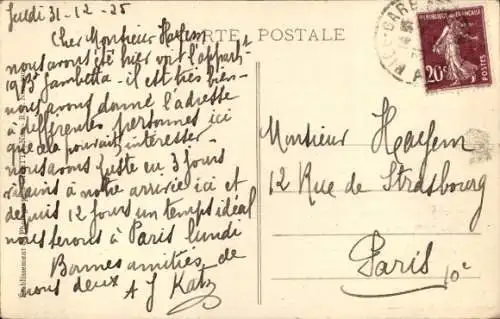 Jeudi 31-12-25
Cher Monsieur Haesem
nous avons été hier voir l'appart
198 Gambetta - il est très bien -
nous avons donné l'adresse
à différentes personnes ici
que cela pourrait intéresser -
nous avons juste eu 3 jours
à notre arrivée ici et
depuis 12 jours un temps idéal
nous serons à Paris lundi
Bonnes amitiés de
nous deux A J Katz
CARTE POSTALE
REPUBLIQUE FRANÇAISE
20c
POSTES
Monsieur Haesem
12 Rue de Strasbourg
Paris 10e